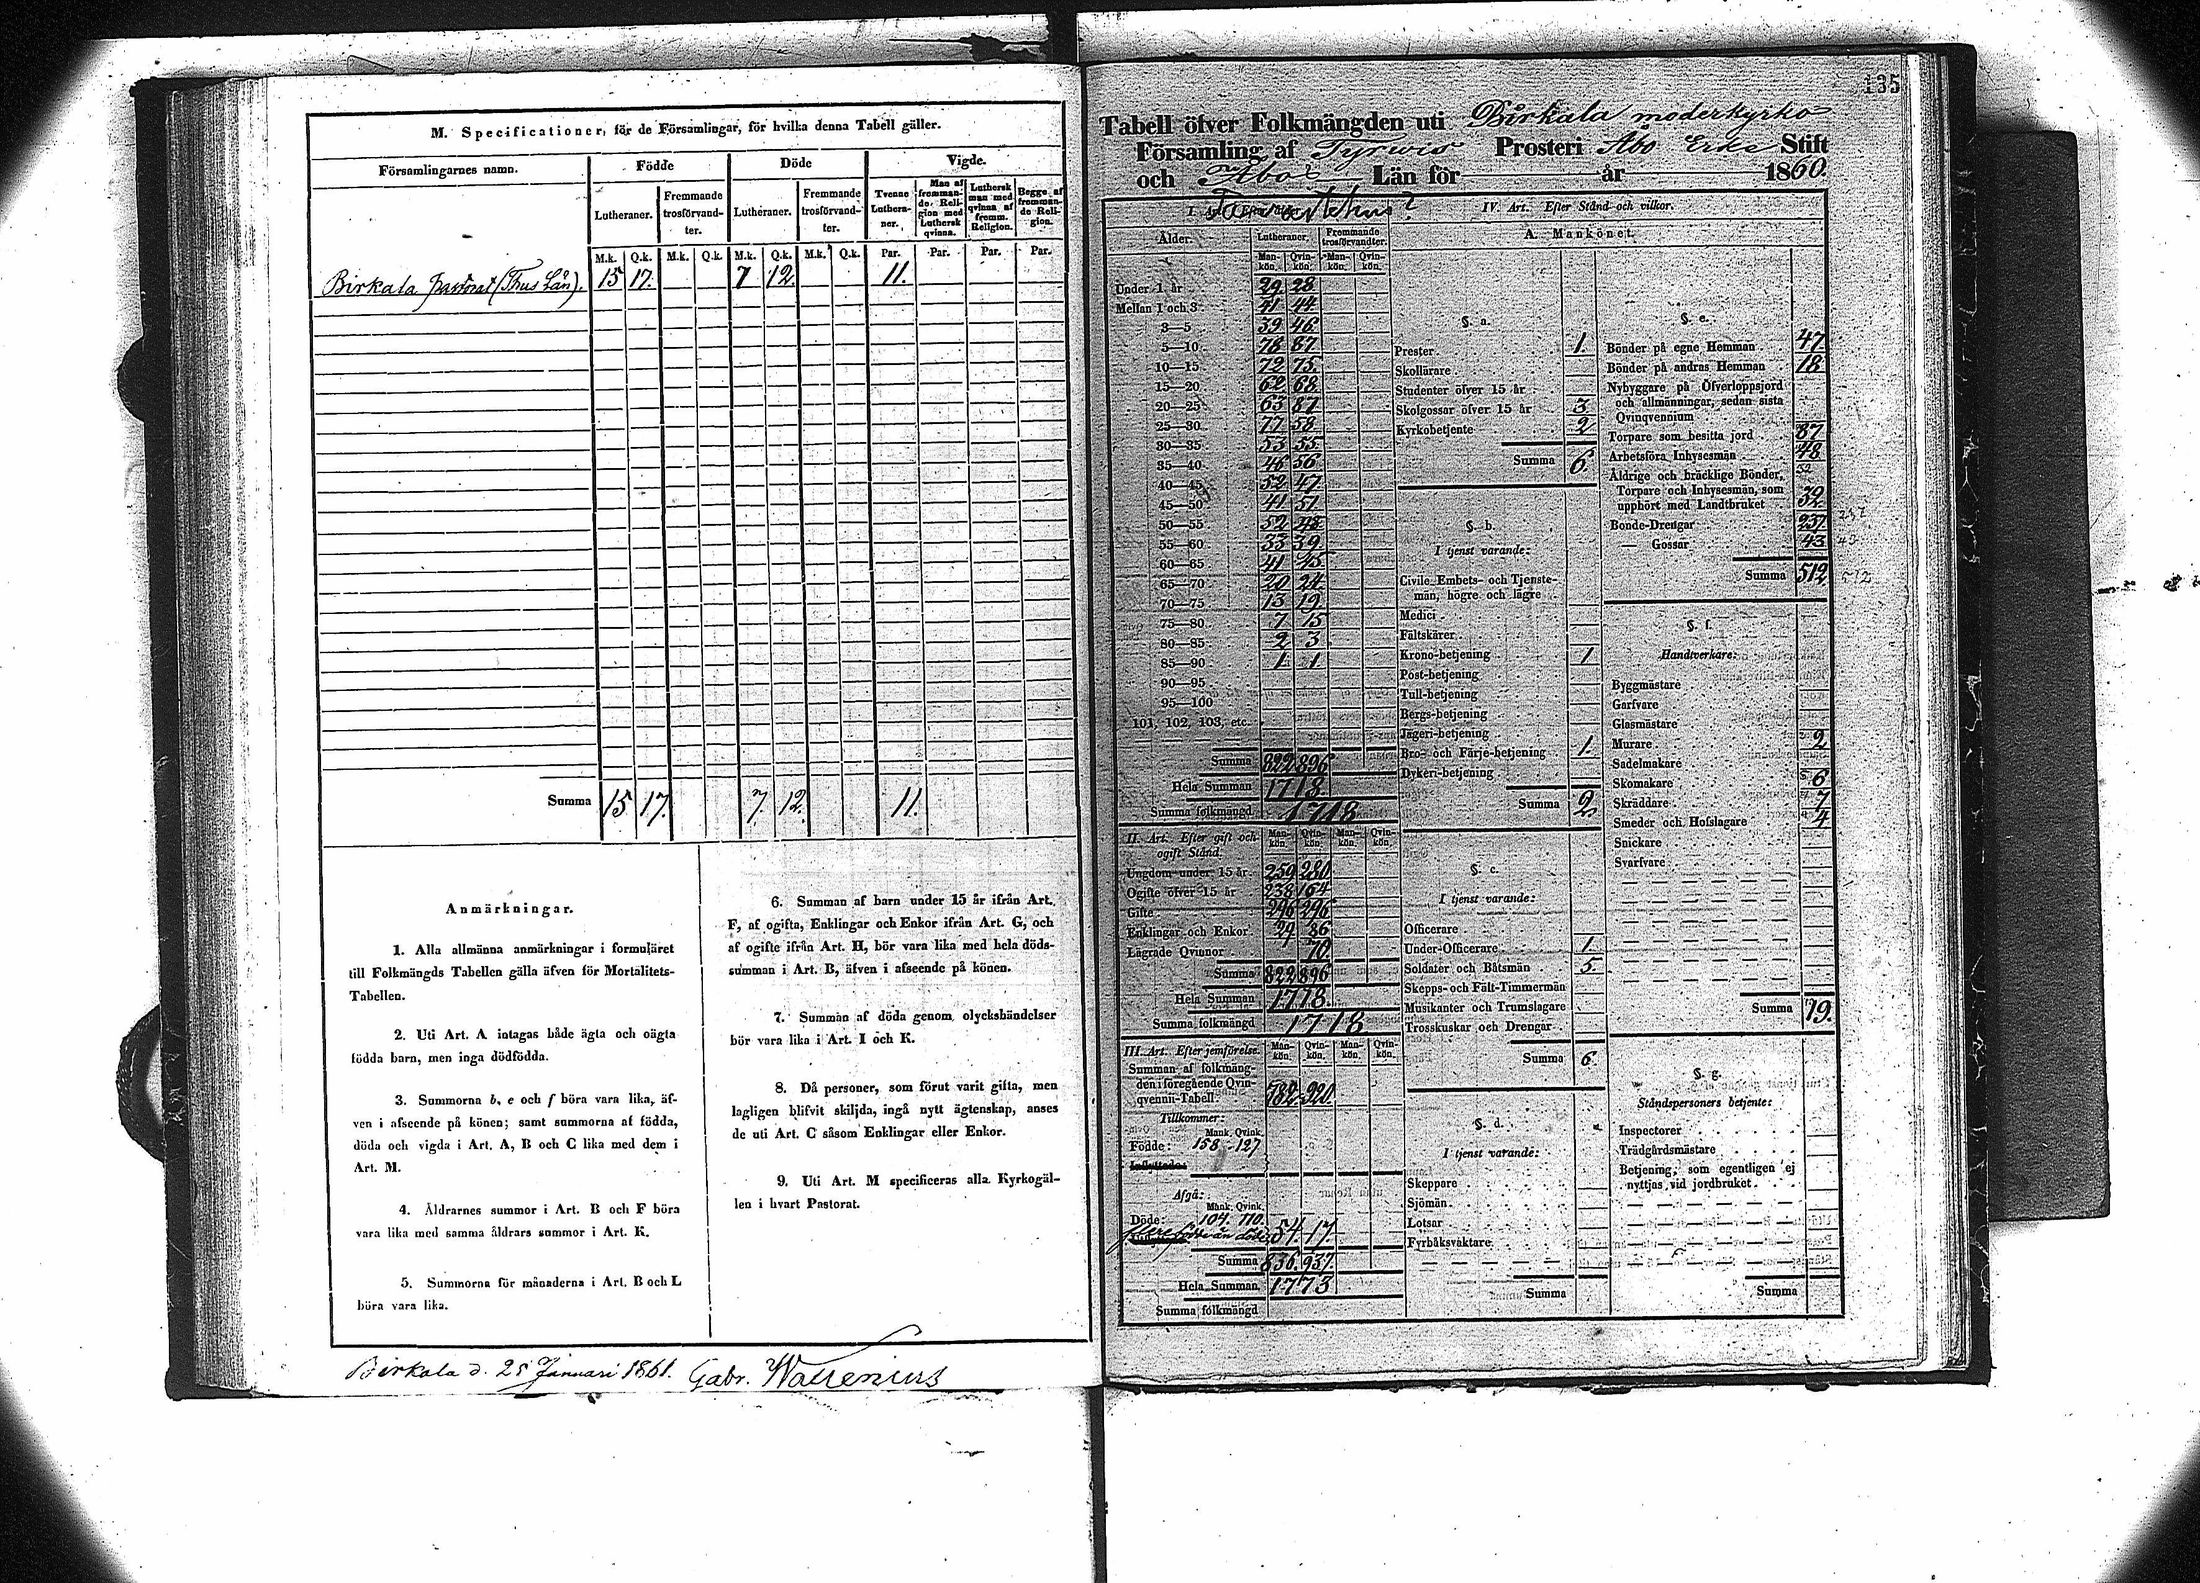 M. Specificationer, för de Församlingar, för hvilka denna Tabell gäller.
Församlingarnes namn.
Födde
Döde
Vigde.
Lutheraner.
Fremmande trosförvandter.
Lutheraner.
Fremmande trosförvandter.
Tvenne Lutheraner.
Man af fremmande Religion med Luthersk qvinna.
Luthersk man med qvinna af fremm. Religion.
Begge af fremmande Religion.
M.k. Q.k. M.k. Q.k. M.k. Q.k. M.k. Q.k. Par. Par. Par. Par.
Birkala pastorat (Thus Län). 15 17. 7 12. 11.
Summa 15 17. 7. 12. 11.
Anmärkningar.
1. Alla allmänna anmärkningar i formuläret
till Folkmängds Tabellen gälla äfven för Mortalitets-
Tabellen.
2. Uti Art. A intagas både ägta och oägta
födda barn, men inga dödfödda.
3. Summorna b, e och f böra vara lika, äf-
ven i afseende på könen; samt summorna af födda,
döda och vigda i Art. A, B och C lika med dem i
Art. M.
4. Åldrarnes summor i Art. B och F böra
vara lika med samma åldrars summor i Art. K.
5. Summorna för månaderna i Art. B och L
böra vara lika.
6. Summan af barn under 15 år ifrån Art.
F, af ogifta, Enklingar och Enkor ifrån Art. G, och
af ogifte ifrån Art. H, bör vara lika med hela döds-
summan i Art. B, äfven i afseende på könen.
7. Summan af döda genom olyckshändelser
bör vara lika i Art. I och K.
8. Då personer, som förut varit gifta, men
lagligen blifvit skiljda, ingå nytt ägtenskap, anses
de uti Art. C såsom Enklingar eller Enkor.
9. Uti Art. M specificeras alla Kyrkogäl-
len i hvart Pastorat.
Birkala d. 25 Januari 1861. Gabr. Wallenius
135
Tabell öfver Folkmängden uti Birkala moderkyrko
Församling af Tyrvis Prosteri Åbo Erke Stift
och Åbo Län för år 1860.
Tavastehus?
Ålder.
Lutheraner. Fremmande trosförvandter.
Mankön. Qvinkön. Mankön. Qvinkön.
Under 1 år 29 28
Mellan 1 och 3 41 44
3—5 39 46
5—10 78 87
10—15 72 75.
15—20 62 68
20—25 63 87
25—30 77 58
30—35 53 55
35—40 46 56
40—45 52 47
45—50 41 51
50—55 52 48
55—60 33 39
60—65 41 45
65—70 20 24
70—75 13 19
75—80 7 15
80—85 2 3
85—90 1 1
90—95
95—100
101, 102, 103, etc.
Summa 822 896
Hela Summan 1718.
Summa folkmängd 1718
II. Art. Efter gift och ogift Stånd.
Mankön. Qvinkön. Mankön. Qvinkön.
Ungdom under 15 år 259 280
Ogifte öfver 15 år 238 164
Gifte 296 296
Enklingar och Enkor 29 86
Lägrade Qvinnor 70.
Summa 822 896
Hela Summan 1718.
Summa folkmängd 1718
III. Art. Efter jemförelse.
Mankön. Qvinkön. Mankön. Qvinkön.
Summan af folkmäng-
den i föregående Qvin-
qvennii-Tabell 782 920
Tillkommer:
Mank. Qvink.
Födde: 158 127
Inflyttade:
Afgå:
Mank. Qvink.
Döde: 104. 110.
flere födde än döde 54 17
Summa 836 937.
Hela Summan 1773
Summa folkmängd
IV. Art. Efter Stånd och vilkor.
A. Mankönet.
§. a.
Prester 1.
Skollärare
Studenter öfver 15 år
Skolgossar öfver 15 år 3
Kyrkobetjente 2
Summa 6.
§. b.
I tjenst varande:
Civile Embets- och Tjenste-
män, högre och lägre
Medici
Fältskärer
Krono-betjening 1
Post-betjening
Tull-betjening
Bergs-betjening
Jägeri-betjening
Bro- och Färje-betjening 1.
Dykeri-betjening
Summa 2
§. c.
I tjenst varande:
Officerare
Under-Officerare 1.
Soldater och Båtsmän 5.
Skepps- och Fält-Timmermän
Musikanter och Trumslagare
Trosskuskar och Drengar
Summa 6.
§. d.
I tjenst varande:
Skeppare
Sjömän
Lotsar
Fyrbåksvaktare
Summa
§. e.
Bönder på egne Hemman 47
Bönder på andras Hemman 18
Nybyggare på Öfverloppsjord
och allmänningar, sedan sista
Qvinqvennium
Torpare som besitta jord 87
Arbetsföra Inhysesmän 48
Åldrige och bräcklige Bönder,
Torpare och Inhysesmän, som
upphört med Landtbruket 32
Bonde-Drengar 237 237
— Gossar 43 43
Summa 512 512
§. f.
Handtverkare:
Byggmästare
Garfvare
Glasmästare
Murare 2
Sadelmakare
Skomakare 6
Skräddare 7
Smeder och Hofslagare 4
Snickare
Svarfvare
Summa 19.
§. g.
Ståndspersoners betjente:
Inspectorer
Trädgårdsmästare
Betjening, som egentligen ej
nyttjas vid jordbruket
Summa